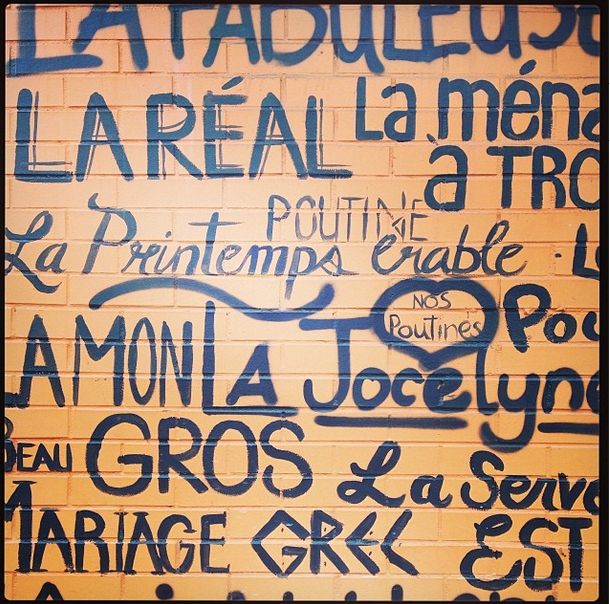 LA FABULEUSE
LA RÉAL
La ména
à TRO
POUTINE
La Printemps érable · L
NOS
Poutines
Pou
LA MON
LA Jocelyne
BEAU GROS
La Serve
MARIAGE GREC
EST